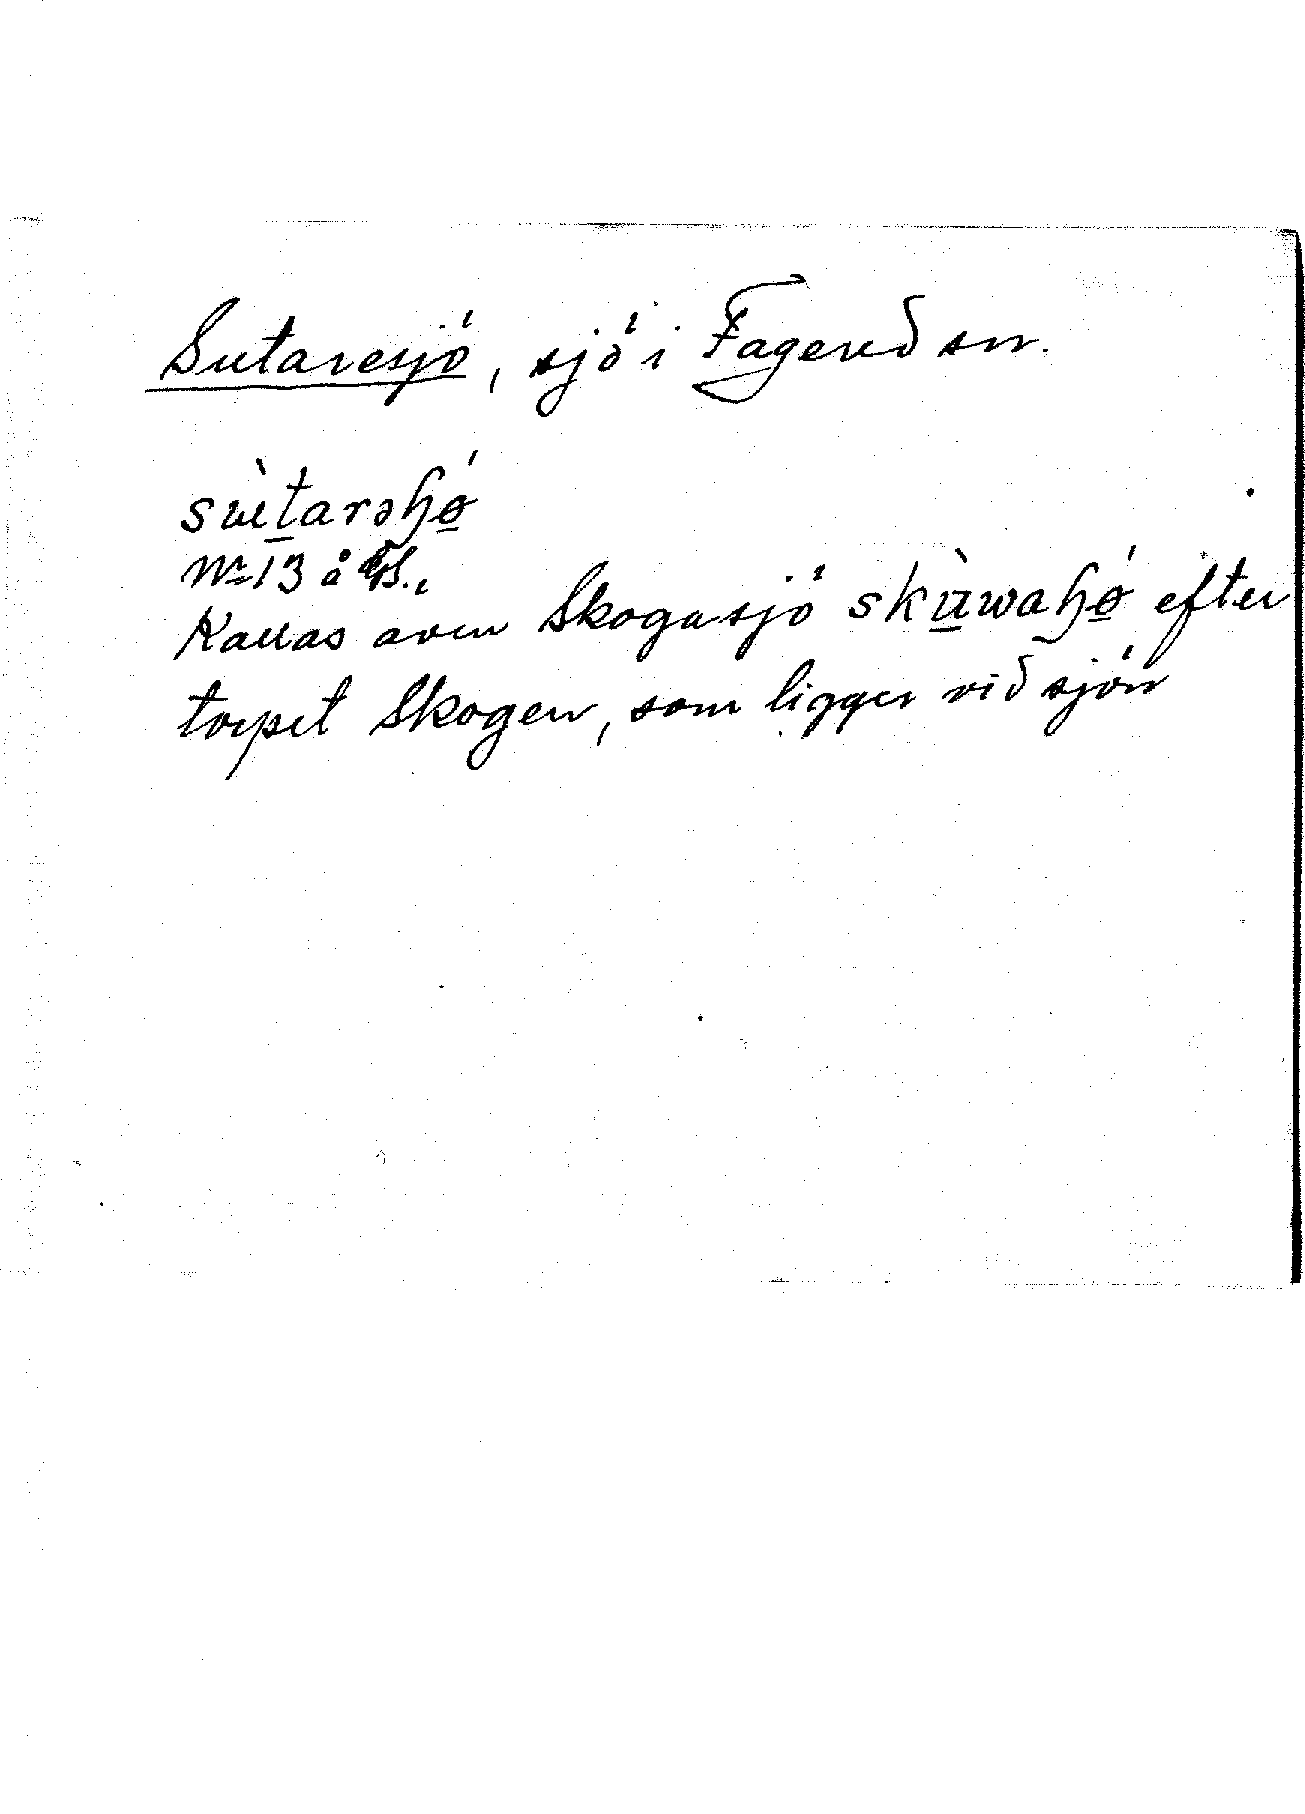 Sutaresjö, sjö i Fagered sn.
sùtarəɧǿ
Nr 13 å
Kallas även Skogasjö skùwaɧǿ efter
torpet Skogen, som ligger vid sjön